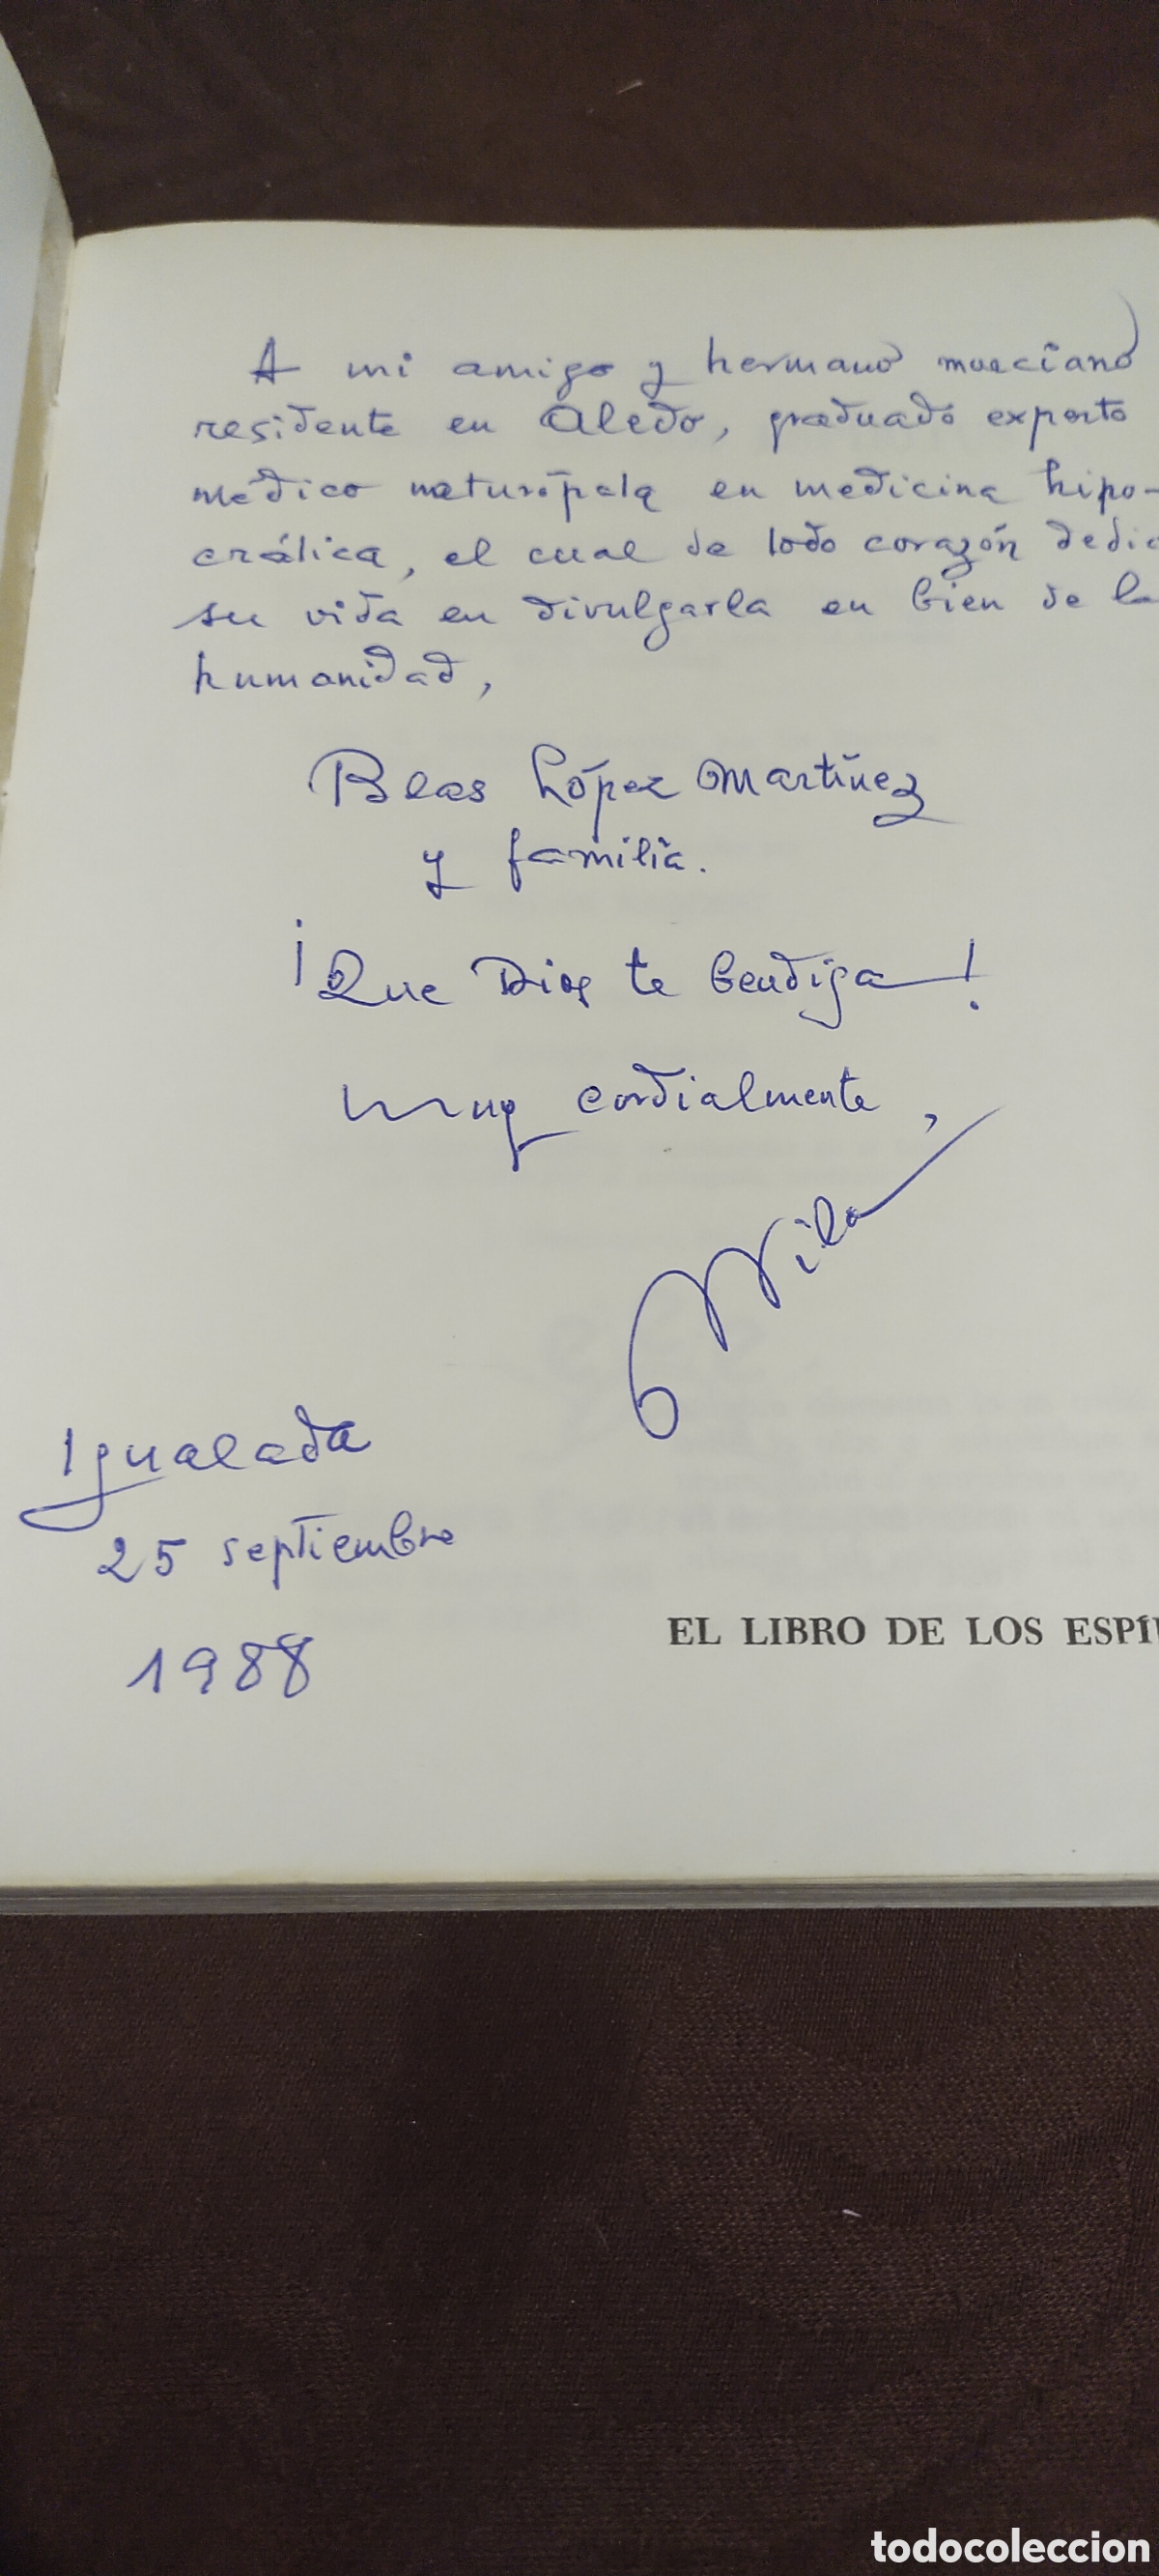 A mi amigo y hermano murciano
residente en Aledo, graduado experto
médico naturópata en medicina hipo-
crática, el cual de todo corazón dedic
su vida en divulgarla en bien de la
humanidad,
Blas López Martínez
y familia.
¡Que Dios te bendiga!
Muy cordialmente,
Vila
Igualada
25 septiembre
1988
EL LIBRO DE LOS ESPÍ
todocoleccion